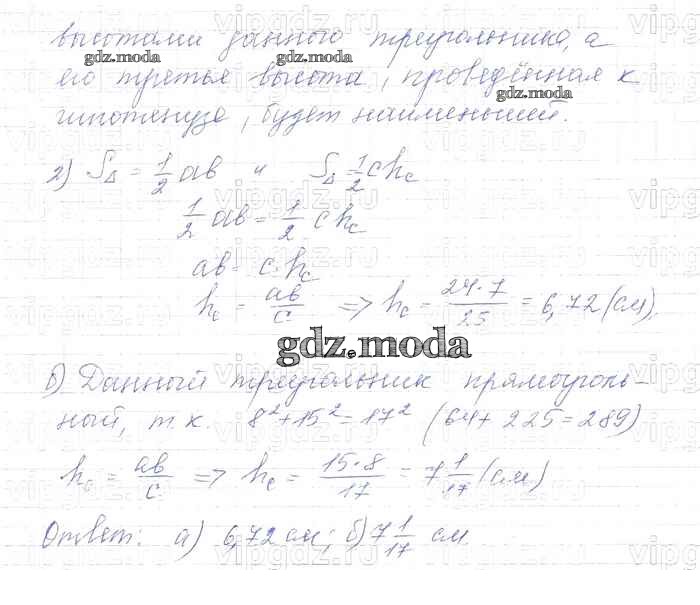 высотами данного треугольника, а
его третья высота, проведённая к
гипотенузе, будет наименьшей.
2) S△ = 1/2 ab и S△ = 1/2 ch_c
1/2 ab = 1/2 ch_c
ab = c·h_c
h_c = ab/c => h_c = 24·7/25 = 6,72 (см).
gdz.moda
б) Данный треугольник прямоуголь-
ный, т.к. 8²+15²=17² (64+225=289)
h_c = ab/c => h_c = 15·8/17 = 7 1/17 (см)
Ответ: а) 6,72 см; б) 7 1/17 см.